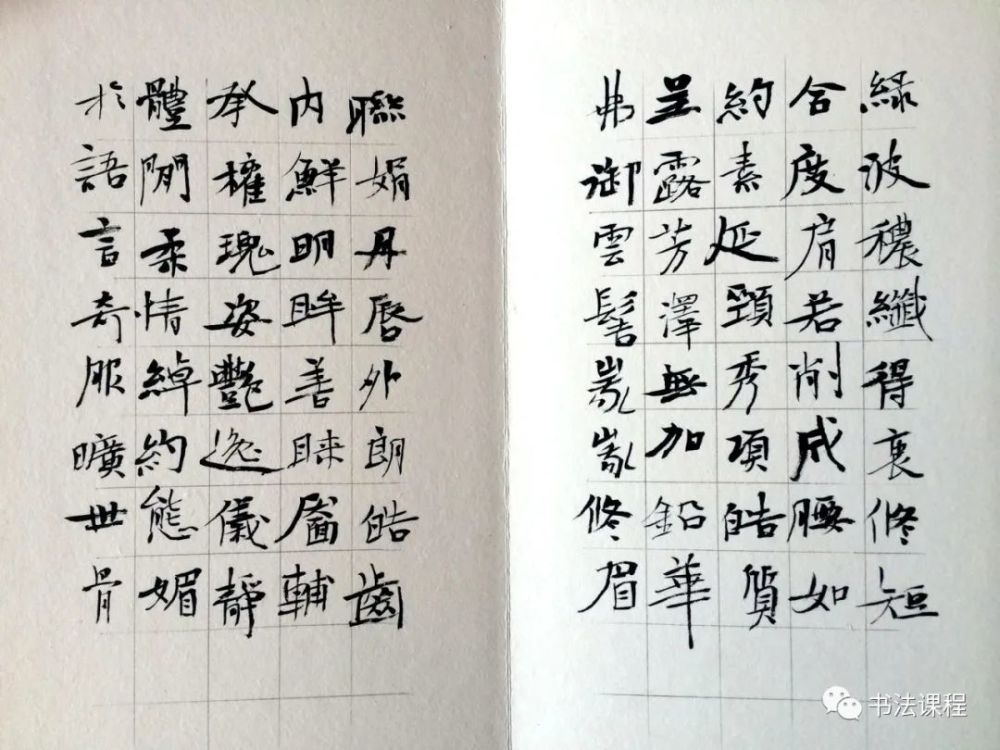 緑波穠纖得衷修短
合度肩若削成腰如
約素延頸秀項皓質
呈露芳澤無加鉛華
弗御雲髻峩峩修眉
聯娟丹唇外朗皓齒
内鮮明眸善睞靨輔
承權瑰姿艷逸儀靜
體閒柔情綽約態媚
於語言奇服曠世骨
书法课程